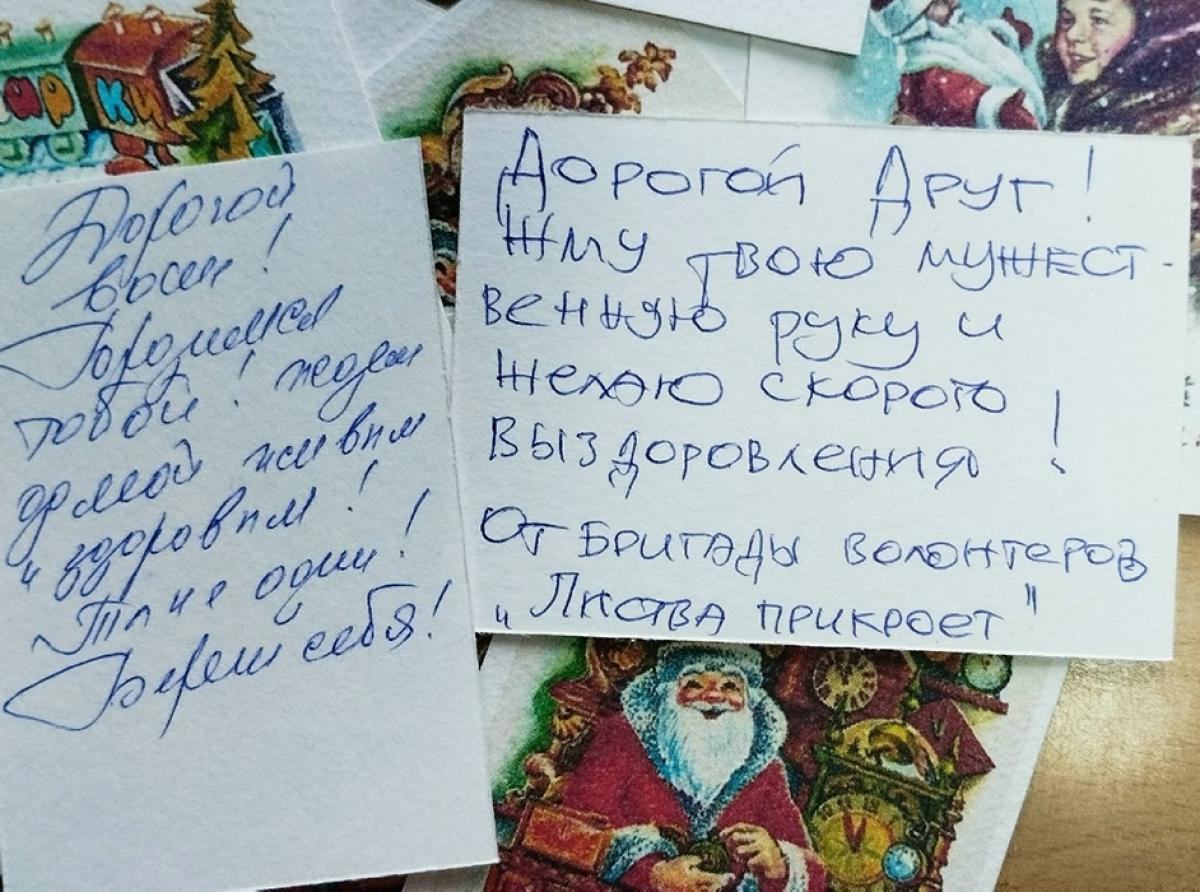 арки
Дорогой
воин!
Гордимся
тобой! Ждем
домой живым
и здоровым!
Ты не один!
Береги себя!
Дорогой Друг!
Жму твою мужест-
венную руку и
желаю скорого
выздоровления!
От Бригады волонтеров
„Листва прикроет"